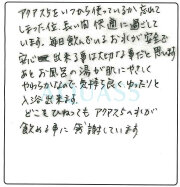 アクアス5をいつから使っているか忘れて
しまった位、長い間快適に過ごして
います。毎日飲んでいるお水が安全で
安心出来る事は大切な事だと思います
あとお風呂の湯が肌にやさしく
やわらかなので気持ち良くゆったりと
入浴出来ます。
どこをひねってもアクアス5の水が
飲める事に感謝しています